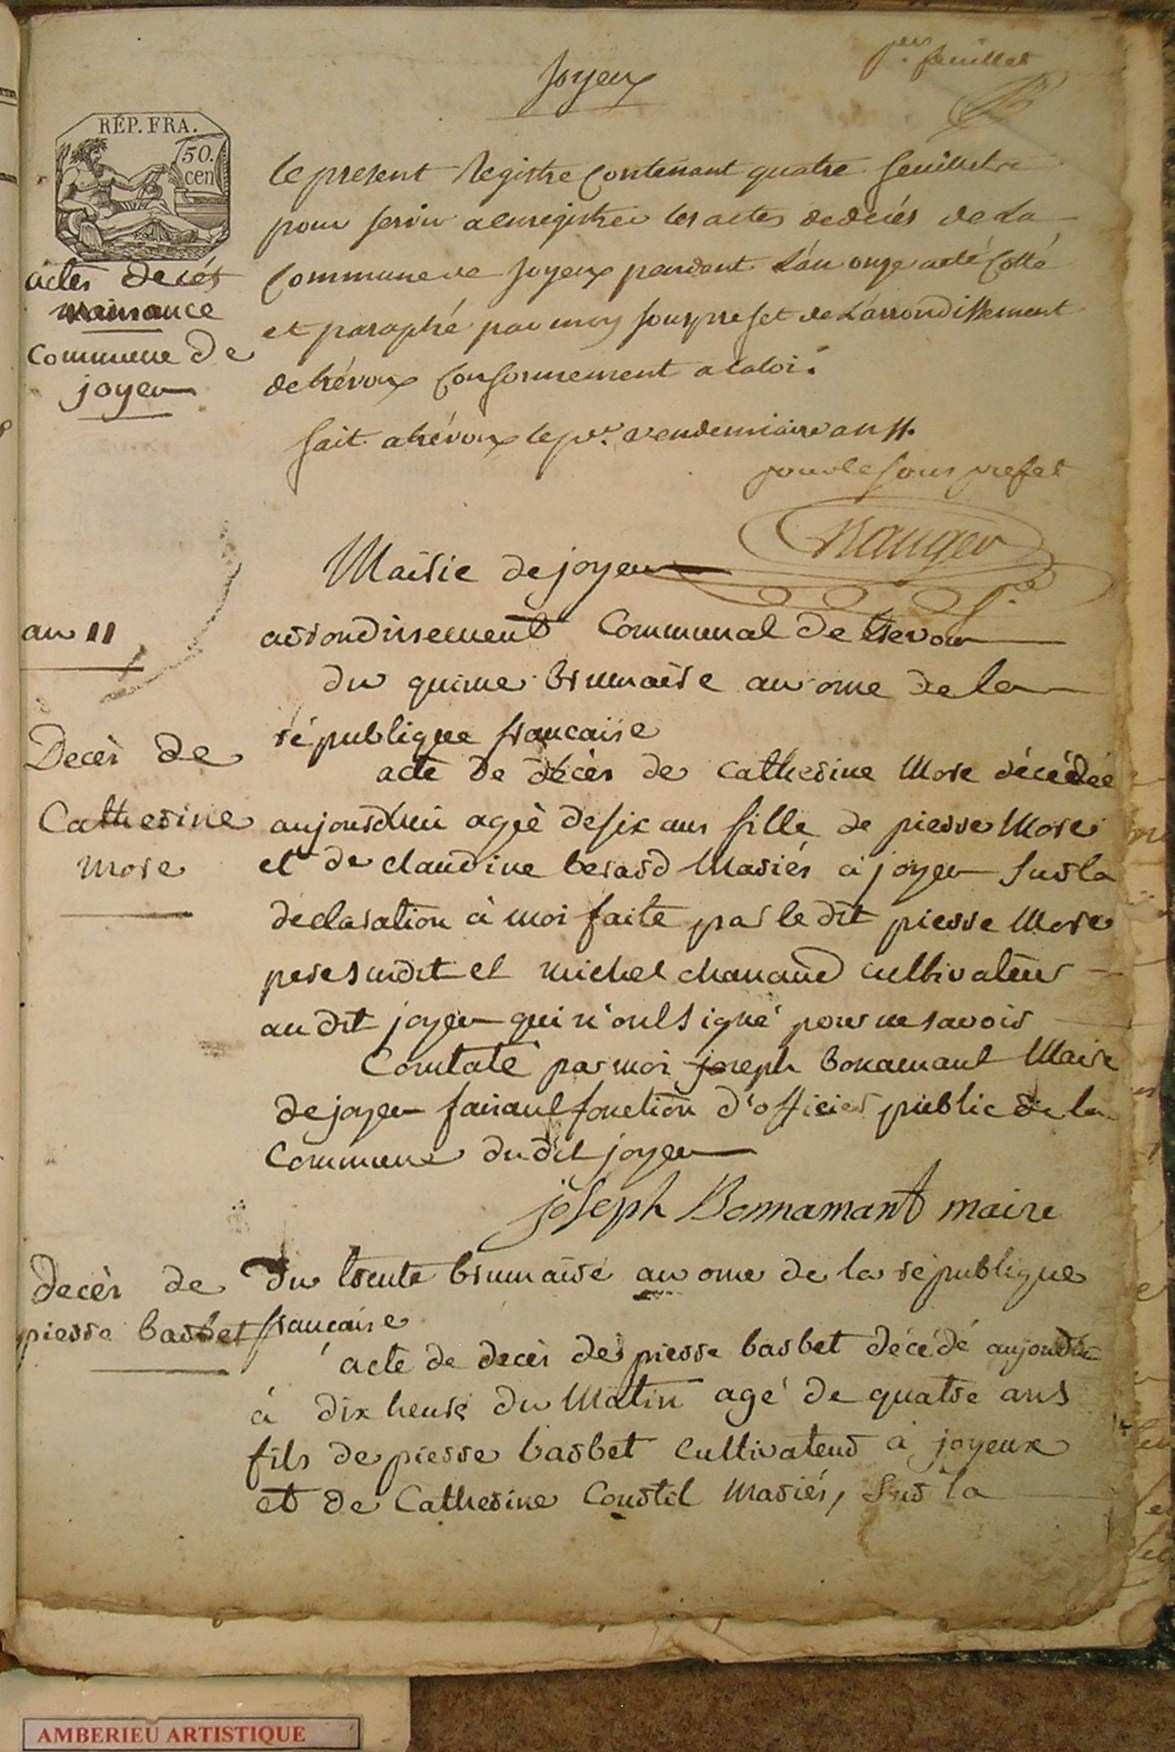 joyeux
per. feuillet
RÉP. FRA.
50.
cen
le present Registre Contenant quatre feuillets
pour servir a enregistrer les actes de decés de La
Commune de joyeux pendant L'an onze a eté Cotté
et paraphé par moy sous prefet de L'arrondissement
de trévoux Conformement a la loi.
fait a trévoux le pr. vendemiaire an 11.
pour le sous prefet
actes decés
naissance
Commune De
joyeu
Mairie de joyeu
an 11
arrondissement Communal de trevou
du quinze brumaire an onze de la
république francaise
Decès de
Catherine
More
acte De décès de Catherine More décédée
aujourdhui ageè de six ans fille de pierre More
et de claudine berard Mariés à joyeu sur la
déclaration à moi faite par le dit pierre More
pere susdit et michel chanand cultivateur
au dit joyeu qui n'ont signé pour ne savoir
Constaté par moi joseph bonamant Maire
de joyeu faisant fonction d'officier public de la
Commune du dit joyeu
joseph Bonnamant maire
decès de
pierre barbet
Du trente brumaire an onze de la république
francaise
acte de decès de pierre barbet décédé aujourdhui
à dix heures du Matin agé de quatre ans
fils de pierre barbet Cultivateur à joyeux
et de Catherine Mariés, Sur la
AMBERIEU ARTISTIQUE